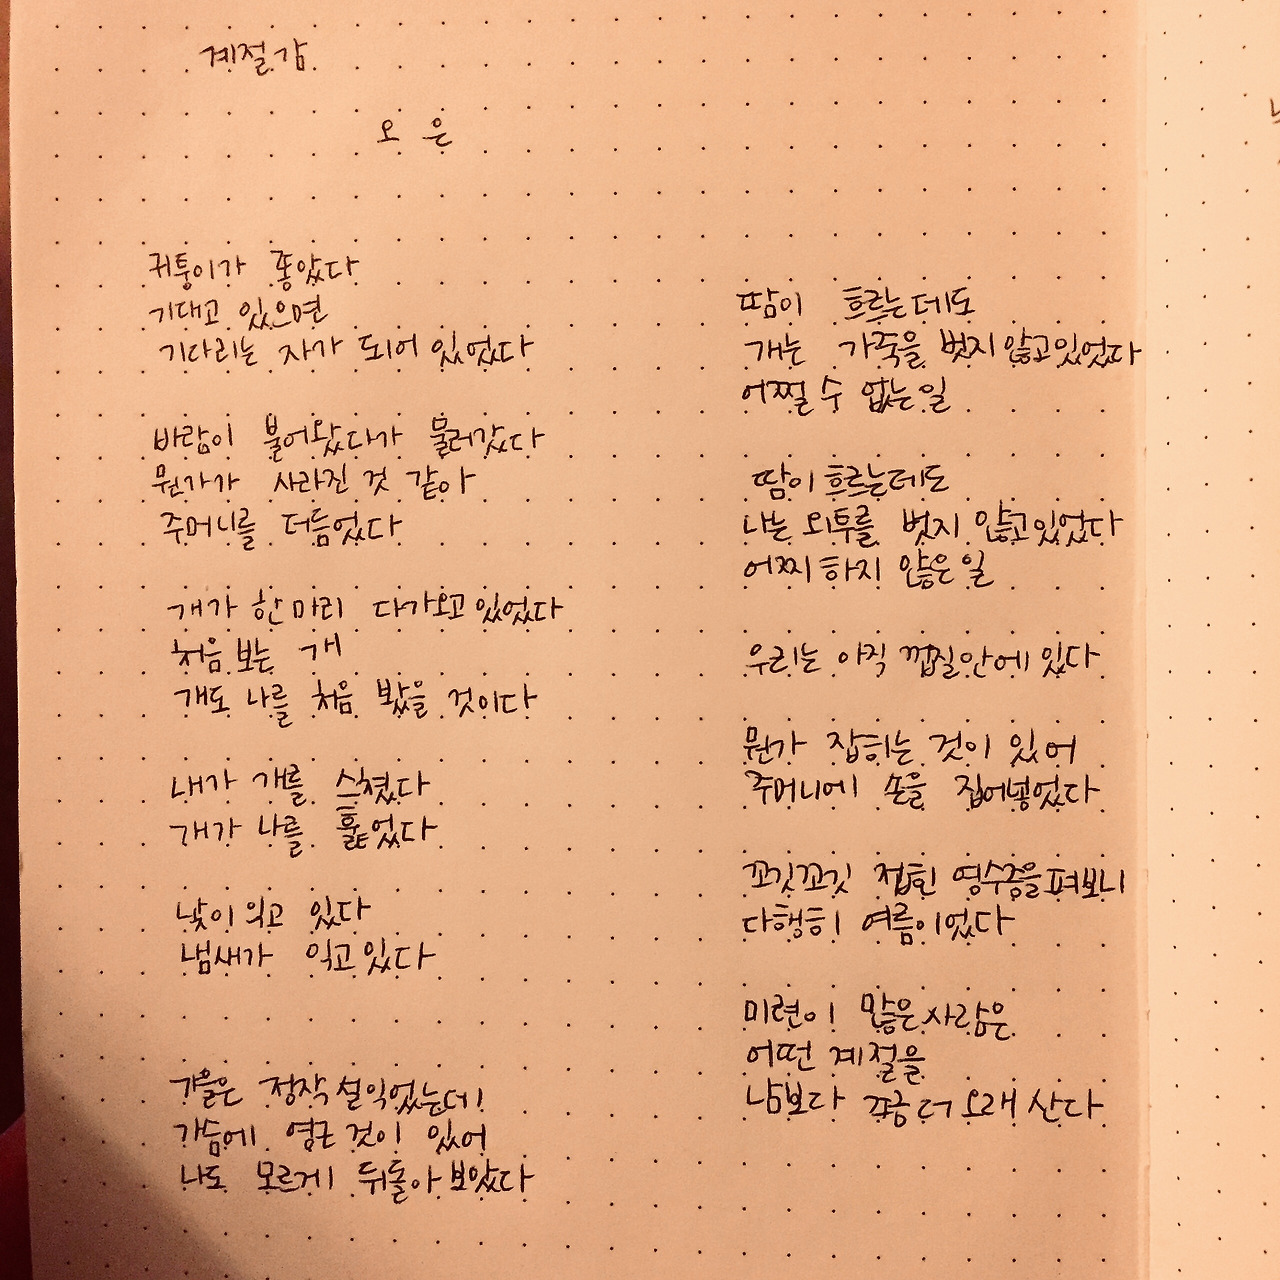 계절감
오 은
귀퉁이가 좋았다
기대고 있으면
기다리는 자가 되어 있었다
바람이 불어왔다가 물러갔다
뭔가가 사라진 것 같아
주머니를 더듬었다
개가 한마리 다가오고 있었다
처음 보는 개
개도 나를 처음 봤을 것이다
내가 개를 스쳤다
개가 나를 훑었다
낯이 익고 있다
냄새가 익고 있다
가을은 정작 설익었는데
가슴에 영근 것이 있어
나도 모르게 뒤돌아보았다
땀이 흐르는데도
개는 가죽을 벗지 않고 있었다
어쩔 수 없는 일
땀이 흐르는데도
나는 외투를 벗지 않고 있었다
어찌하지 않은 일
우리는 아직 껍질 안에 있다
뭔가 잡히는 것이 있어
주머니에 손을 집어넣었다
꼬깃꼬깃 접힌 영수증을 펴보니
다행히 여름이었다
미련이 많은 사람은
어떤 계절을
남보다 조금 더 오래 산다